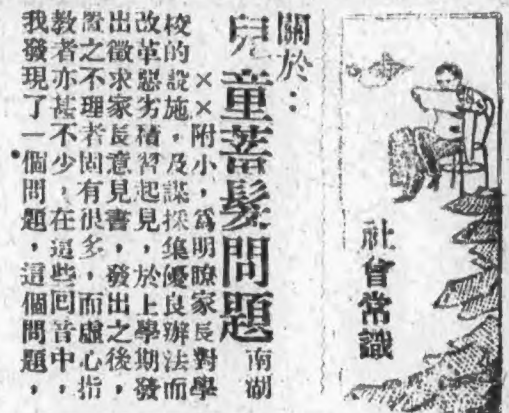 社會常識
關於：
兒童蓄髮問題
南湖
××附小，爲明瞭家長對學
校的設施，及謀採集優良辦法而
改革惡劣積習起見，於上學期發
出徵求家長意見書，發出之後，
置之不理者固有很多，而虛心指
教者亦甚不少，在這些回音中，
我發現了一個問題，這個問題，